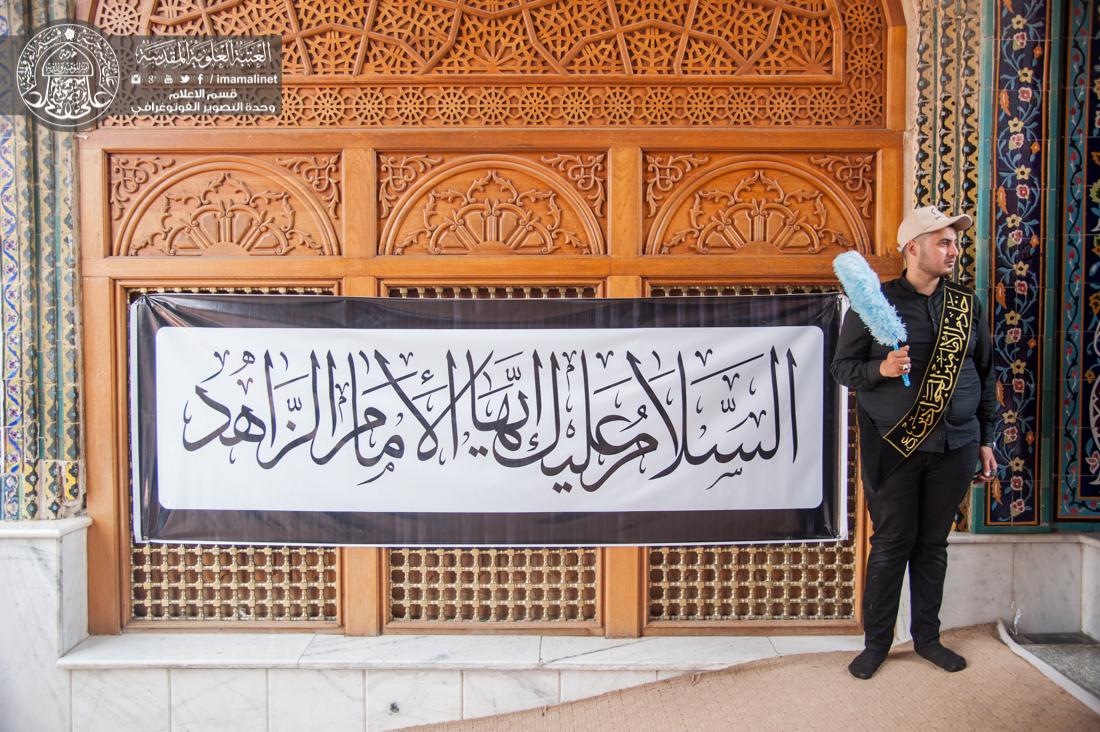 العتبة العلوية المقدسة
f / imamalinet
قسم الاعلام
وحدة التصوير الفوتوغرافي
السَّلَامُ عَلَيْكَ أَيُّهَا الْأِمَامُ الزَّاهِدُ
خادم الإمامين